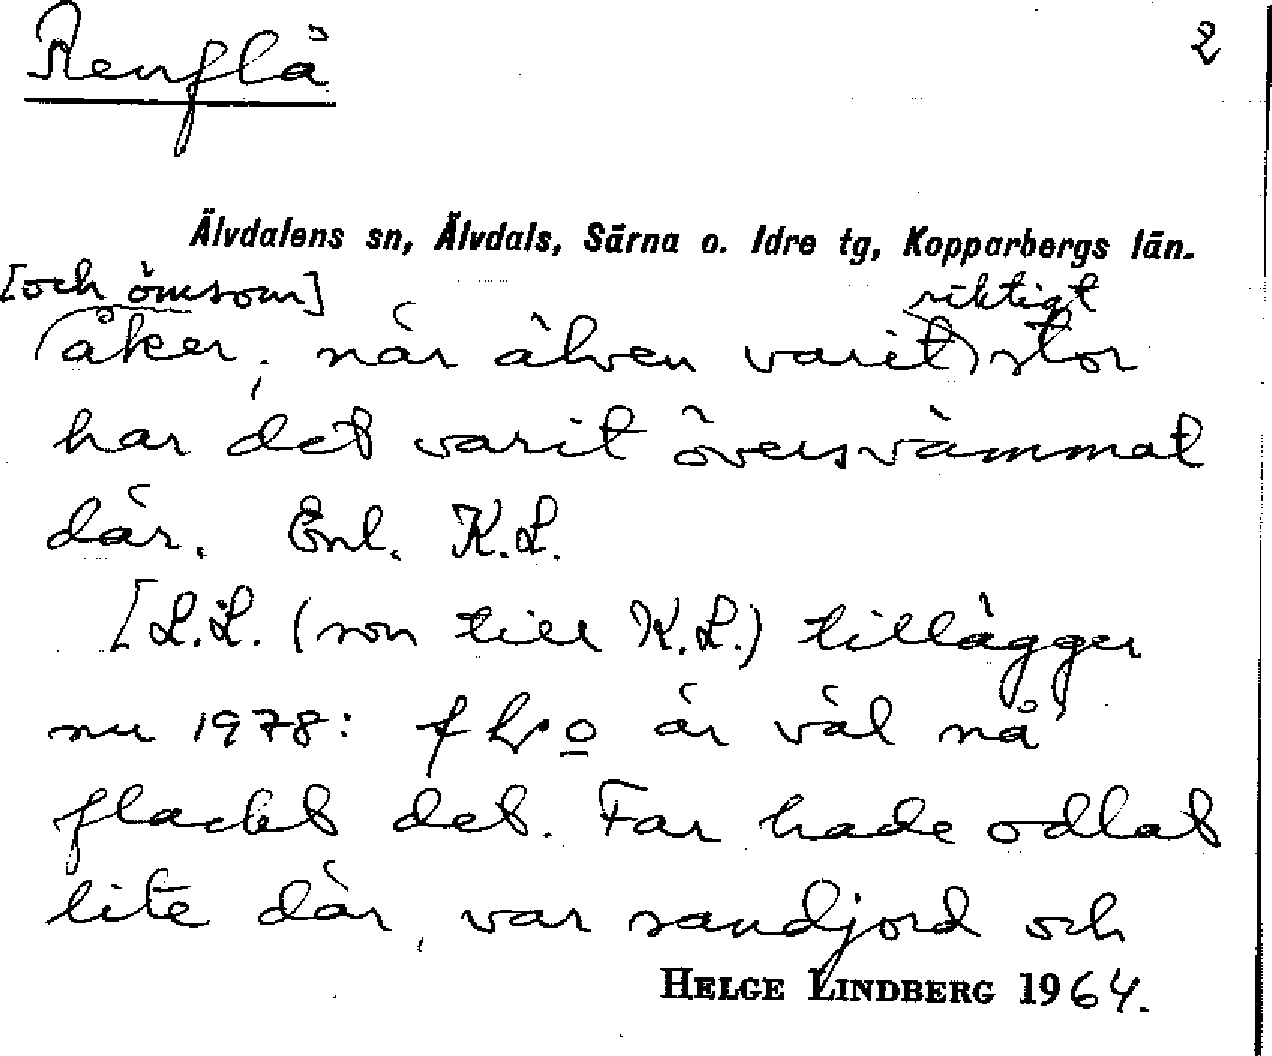 Renflä
2
Älvdalens sn, Älvdals, Särna o. Idre tg, Kopparbergs län.
[och ömsom] riktigt
åker, när älven varit stor
har det varit översvämmat
där. Enl. K.L.
[L.L. (son till K.L.) tillägger
nu 1978: är väl nå
flackt det. Far hade odlat
lite där, var sandjord och
HELGE LINDBERG 1964.